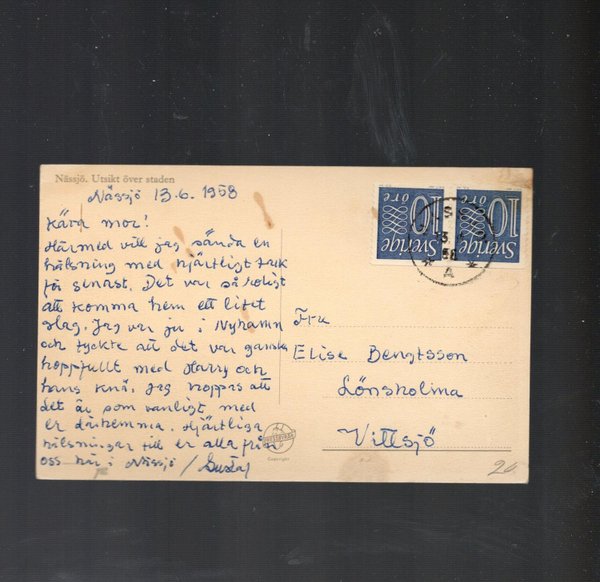 Nässjö. Utsikt över staden
Nässjö 13.6. 1958
Kära mor!
Härmed vill jag sända en
hälsning med hjärtligt tack
för senast. Det var så roligt
att komma hem ett litet
slag. Jag var ju i Nyhamn
och tyckte att det var ganska
hoppfullt med Harry och
hans knä. Jag hoppas att
det är som vanligt med
er därhemma. Hjärtliga
hälsningar till er alla från
oss här i Nässjö / Gustaf
Fru
Elise Bengtsson
Lönsholma
Vittsjö
10 ÖRE
Sverige
10 ÖRE
Sverige
58
A
Copyright
20